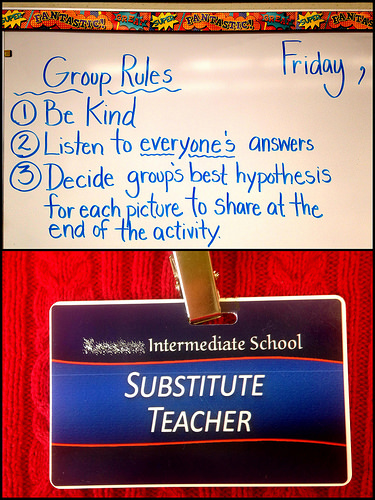 SUPER! FANTASTIC! SUPER! FANTASTIC! SUPER! FANTAST
Group Rules
Friday,
① Be Kind
② Listen to everyone's answers
③ Decide group's best hypothesis
for each picture to share at the
end of the activity.
Intermediate School
SUBSTITUTE
TEACHER